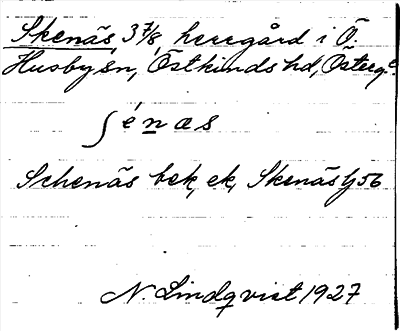 Skenäs, 3 7/8, herregård i Ö.
Husby sn, Östkinds hd, Österg.
ʃénæs
Schenäs bek, ek, Skenäs
N. Lindqvist 1927